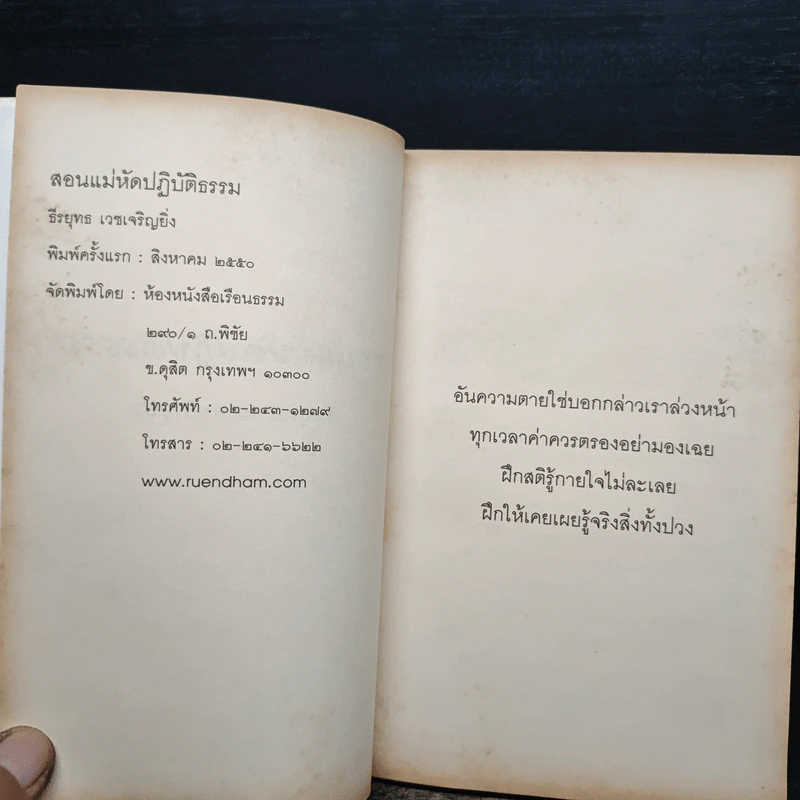 สอนแม่หัดปฏิบัติธรรม
ธีรยุทธ เวชเจริญยิ่ง
พิมพ์ครั้งแรก : สิงหาคม ๒๕๕๐
จัดพิมพ์โดย : ห้องหนังสือเรือนธรรม
๒๙๐/๑ ถ.พิชัย
ข.ดุสิต กรุงเทพฯ ๑๐๓๐๐
โทรศัพท์ : ๐๒-๒๔๓-๑๒๗๙
โทรสาร : ๐๒-๒๔๑-๖๖๒๒
www.ruendham.com
อันความตายใช่บอกกล่าวเราล่วงหน้า
ทุกเวลาค่าควรตรองอย่ามองเฉย
ฝึกสติรู้กายใจไม่ละเลย
ฝึกให้เคยเผยรู้จริงสิ่งทั้งปวง